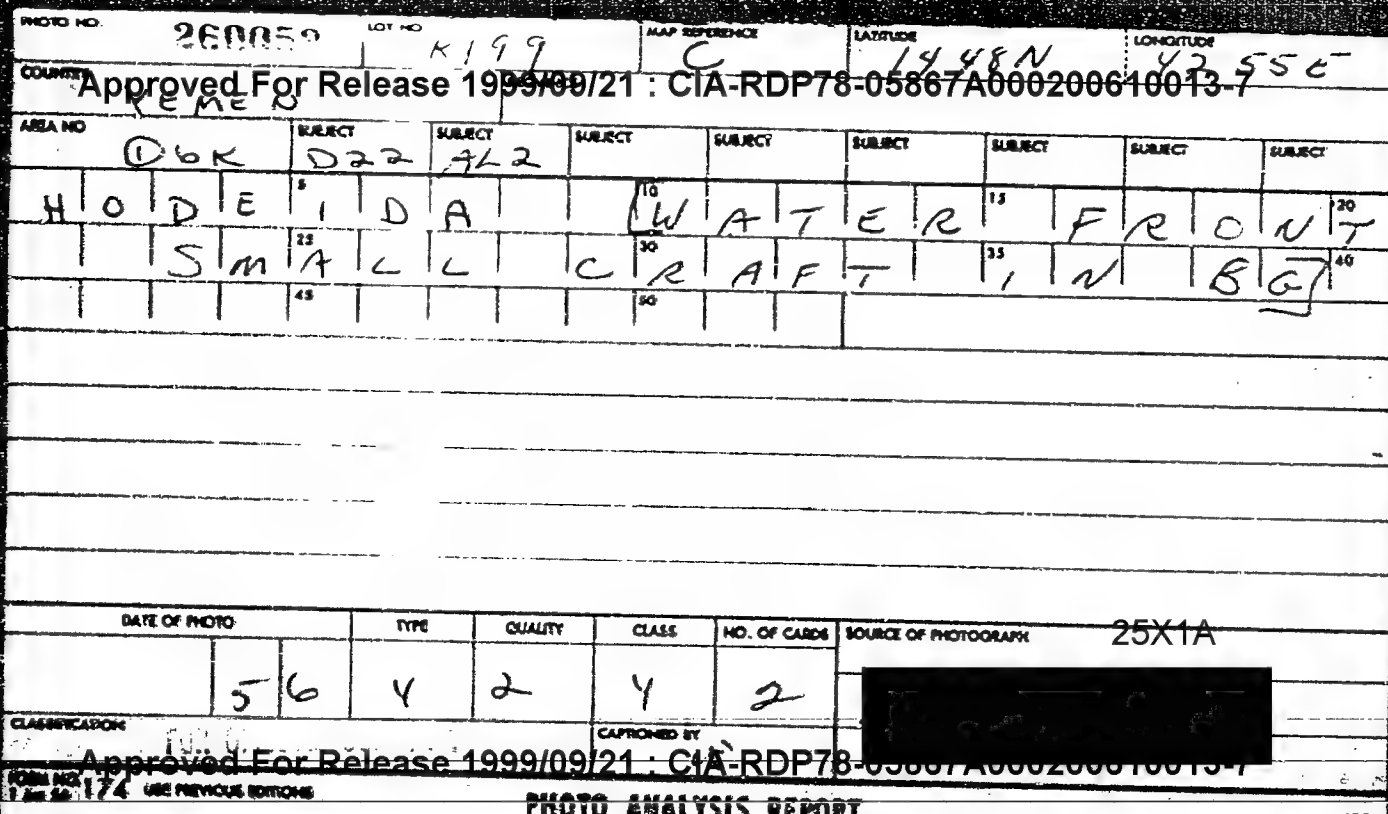 PHOTO NO. 260059 LOT NO K199 MAP REFERENCE C LATITUDE 1448N LONGITUDE 42 55 E
COUNTRY YEMEN
Approved For Release 1999/09/21 : CIA-RDP78-05867A000200610013-7
AREA NO ① 6K SUBJECT D22 SUBJECT AL2 SUBJECT SUBJECT SUBJECT SUBJECT SUBJECT SUBJECT
HODEIDA [WATER FRONT
5 10 15 20
SMALL CRAFT IN BG]
25 30 35 40
45 50
DATE OF PHOTO TYPE QUALITY CLASS NO. OF CARDS SOURCE OF PHOTOGRAPH 25X1A
56 4 2 4 2
CLASSIFICATION CAPTIONED BY
Approved For Release 1999/09/21 : CIA-RDP78-05867A000200610013-7
FORM NO. 174 USE PREVIOUS EDITIONS
PHOTO ANALYSIS REPORT